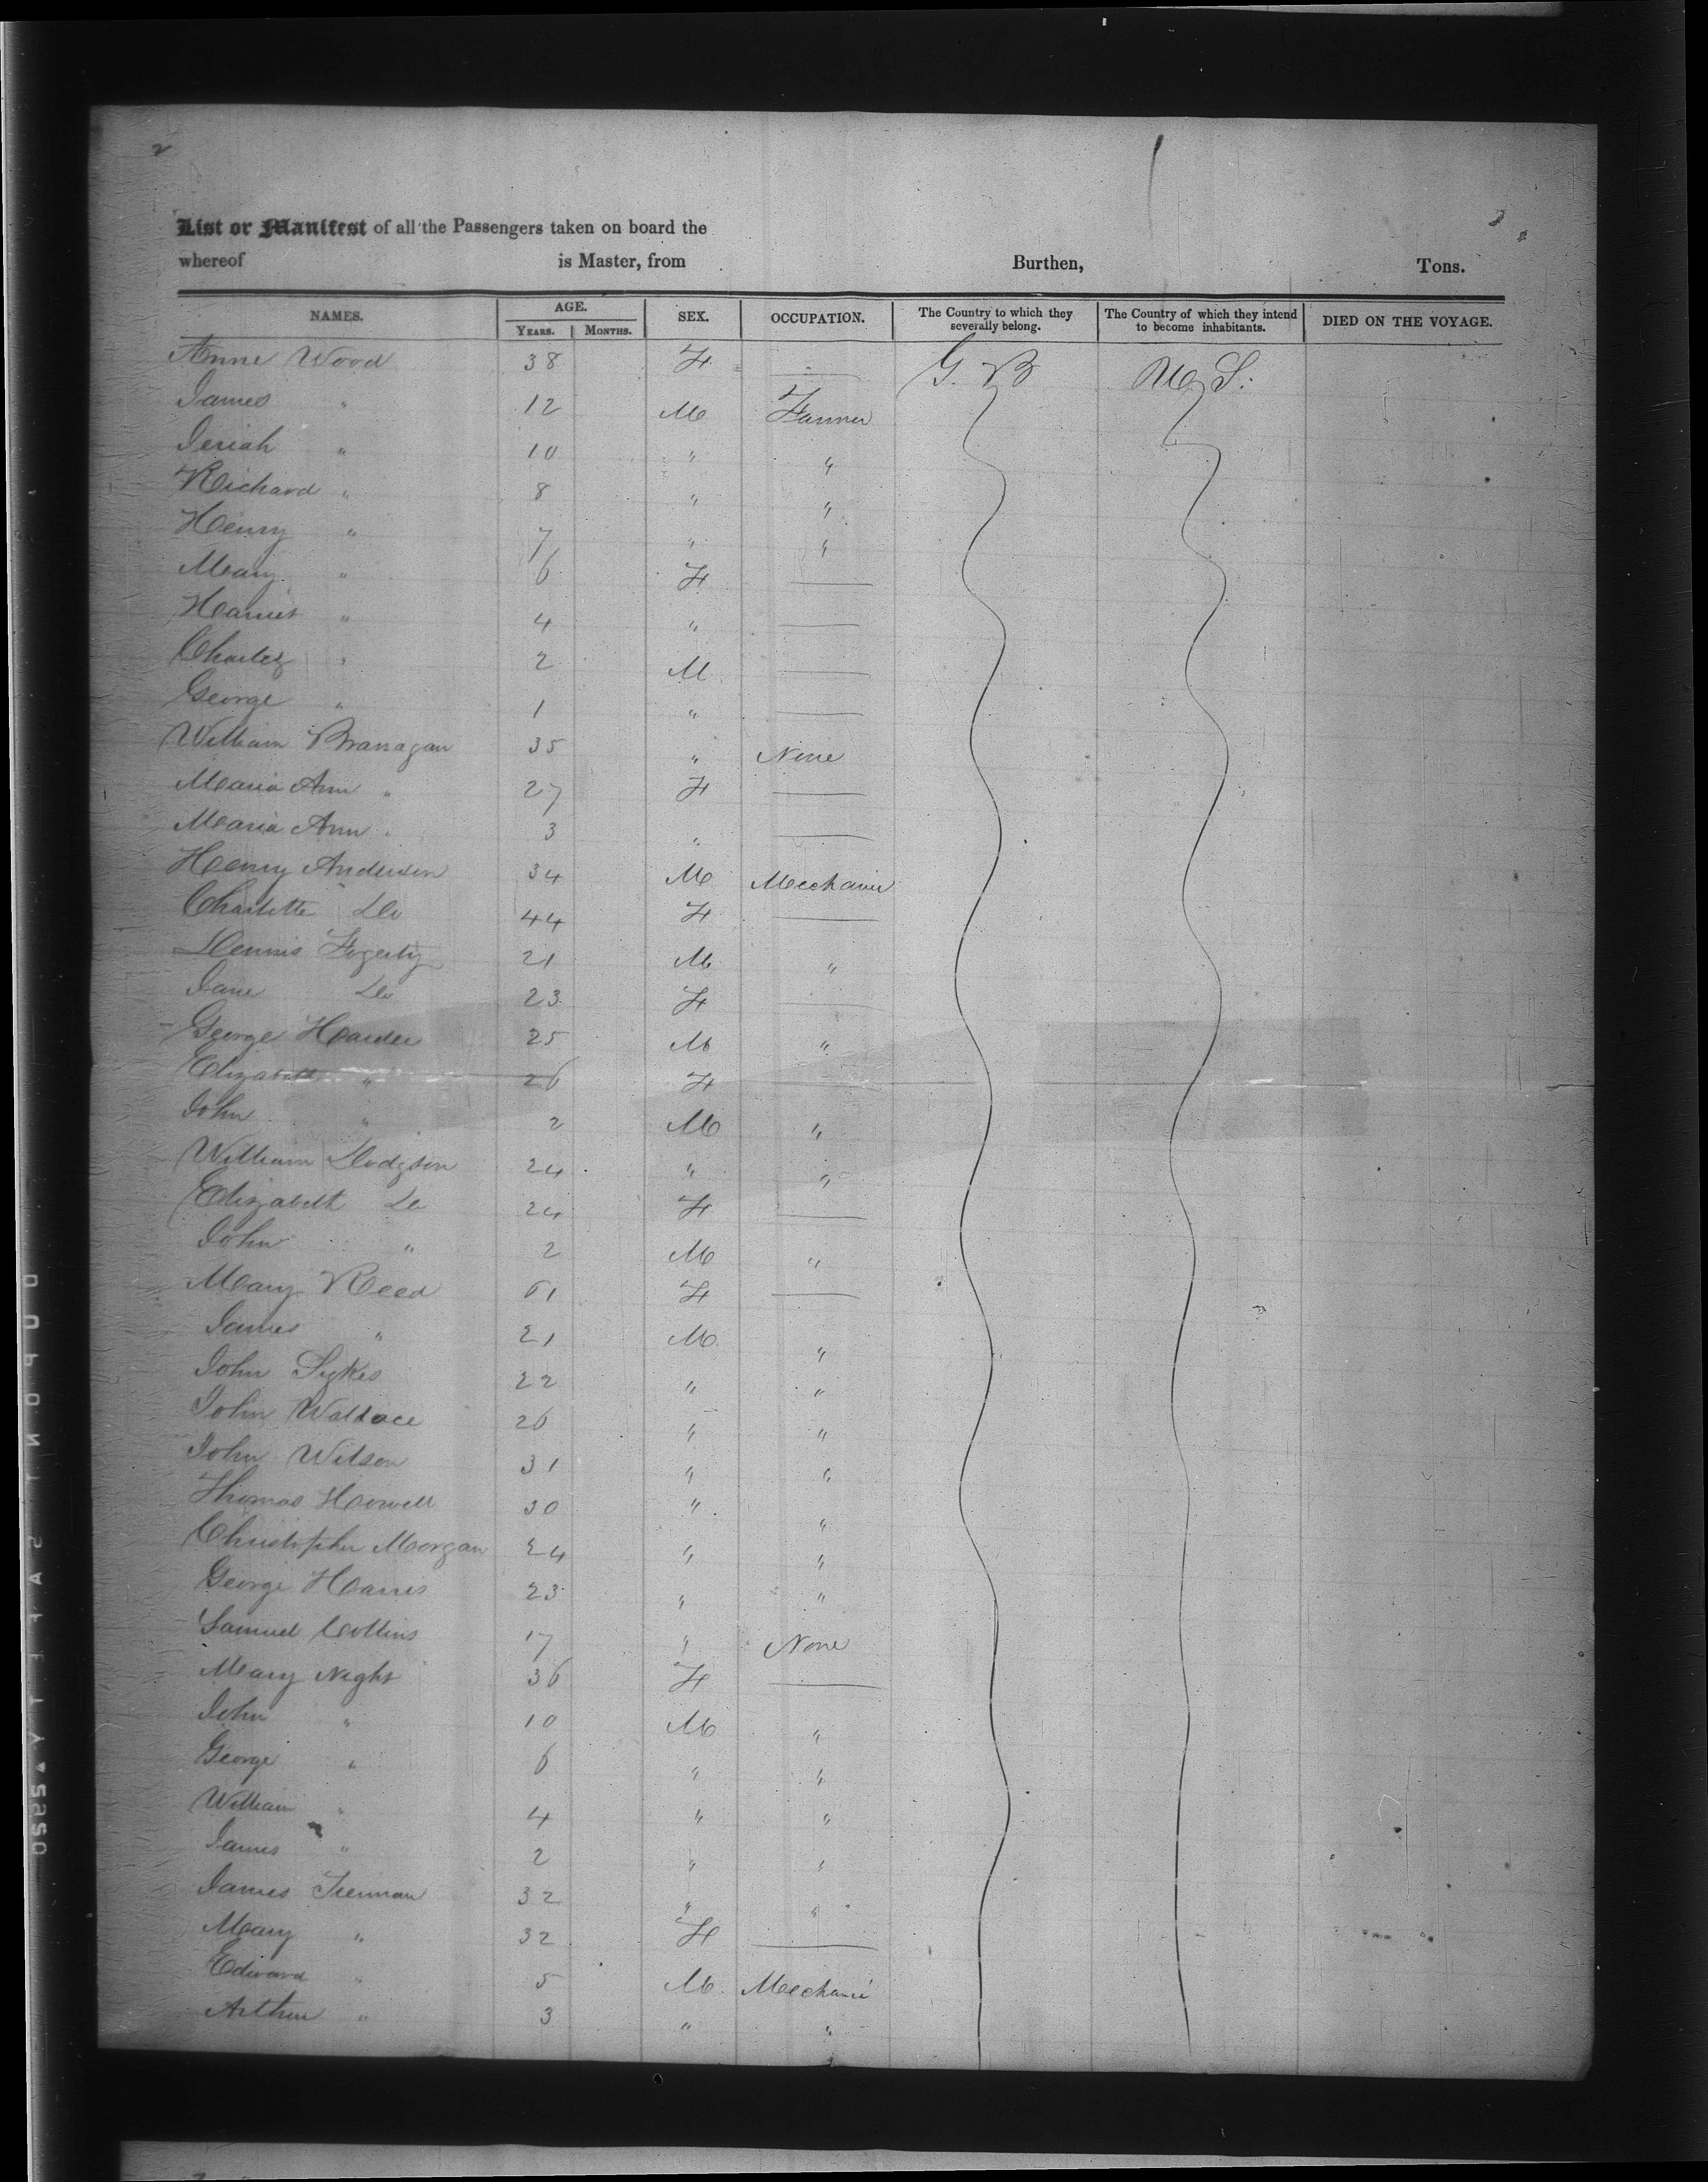 2
List or Manifest of all the Passengers taken on board the
whereof is Master, from Burthen, Tons.
NAMES. AGE. SEX. OCCUPATION. The Country to which they severally belong. The Country of which they intend to become inhabitants. DIED ON THE VOYAGE.
YEARS. MONTHS.
Anne Wood 38 F — G. B U. S.
James " 12 M Farmer
Jeriah " 10 " "
Richard " 8 " "
Henry " 7 " "
Mary " 6 F —
Harriet " 4 " —
Charles " 2 M —
George " 1 " —
William Branagan 35 " None
Maria Ann " 27 F —
Maria Ann " 3 " —
Henry Anderson 34 M Mechanic
Charlotte Do 44 F —
Dennis Fogerty 21 M "
Jane Do 23 F —
George Harder 25 M "
Elizabeth " 26 F —
John " 2 M "
William Dodgson 24 " "
Elizabeth Do 24 F —
John " 2 M "
Mary Reed 61 F —
James " 21 M "
John Sykes 22 " "
John Wallace 26 " "
John Wilson 31 " "
Thomas Howell 30 " "
Christopher Morgan 24 " "
George Harris 23 " "
Samuel Collins 17 " None
Mary Night 36 F —
John " 10 M "
George " 6 " "
William " 4 " "
James " 2 " "
James 32 " "
Mary " 32 F —
Edward " 5 M Mechanic
Arthur " 3 " "